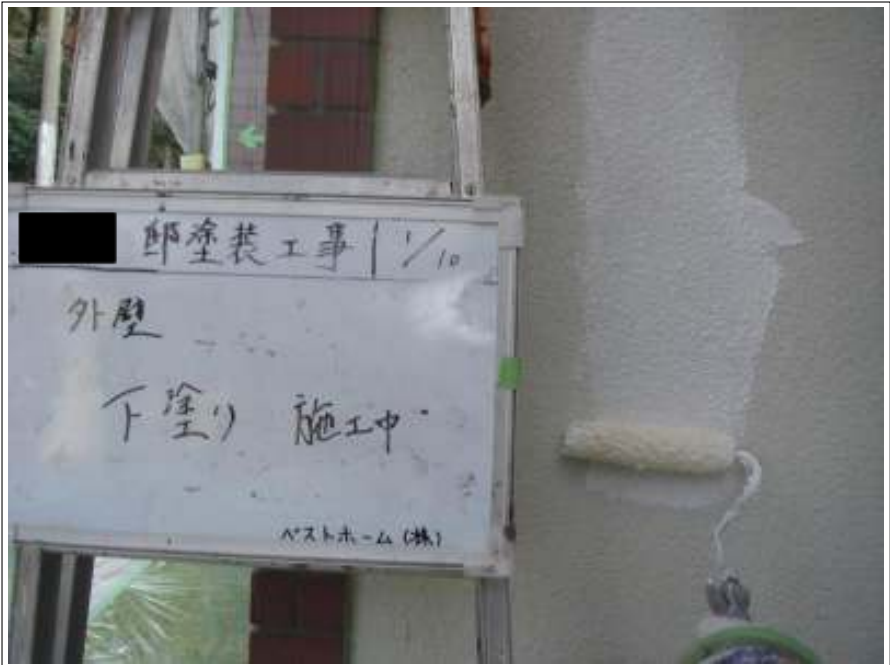 邸塗装工事 1/10
外壁
下塗り 施工中
ベストホーム(株)